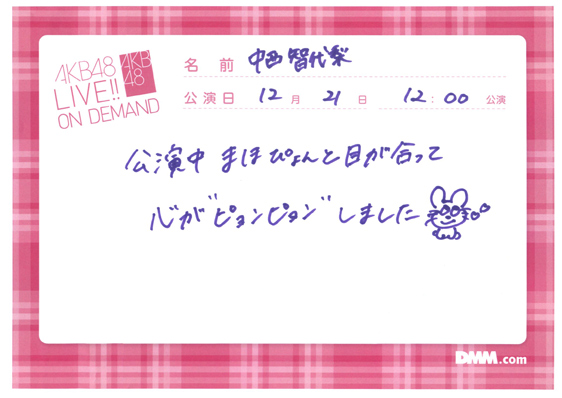 AKB48
LIVE!!
ON DEMAND
AKB
48
名前 中西智代梨
公演日 12月 21日 12:00 公演
公演中 まほぴょんと目が合って
心が"ピョンピョン"しました
DMM.com